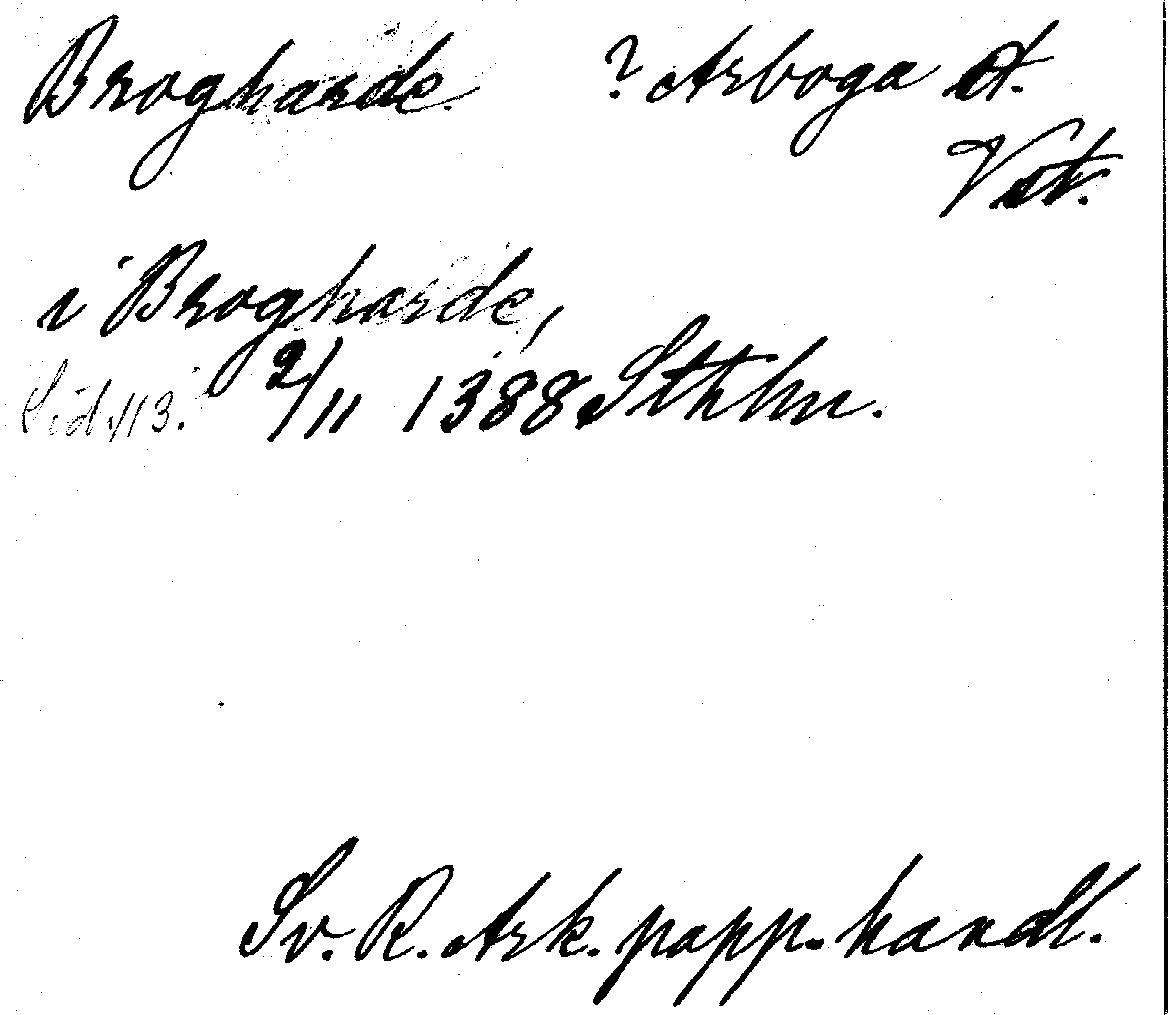 Brogharde. ? Arboga st.
Vstm.
i Brogharde,
Sid 113. 2/11 1388 Sthlm.
Sv. R. Ark. papp. handl.